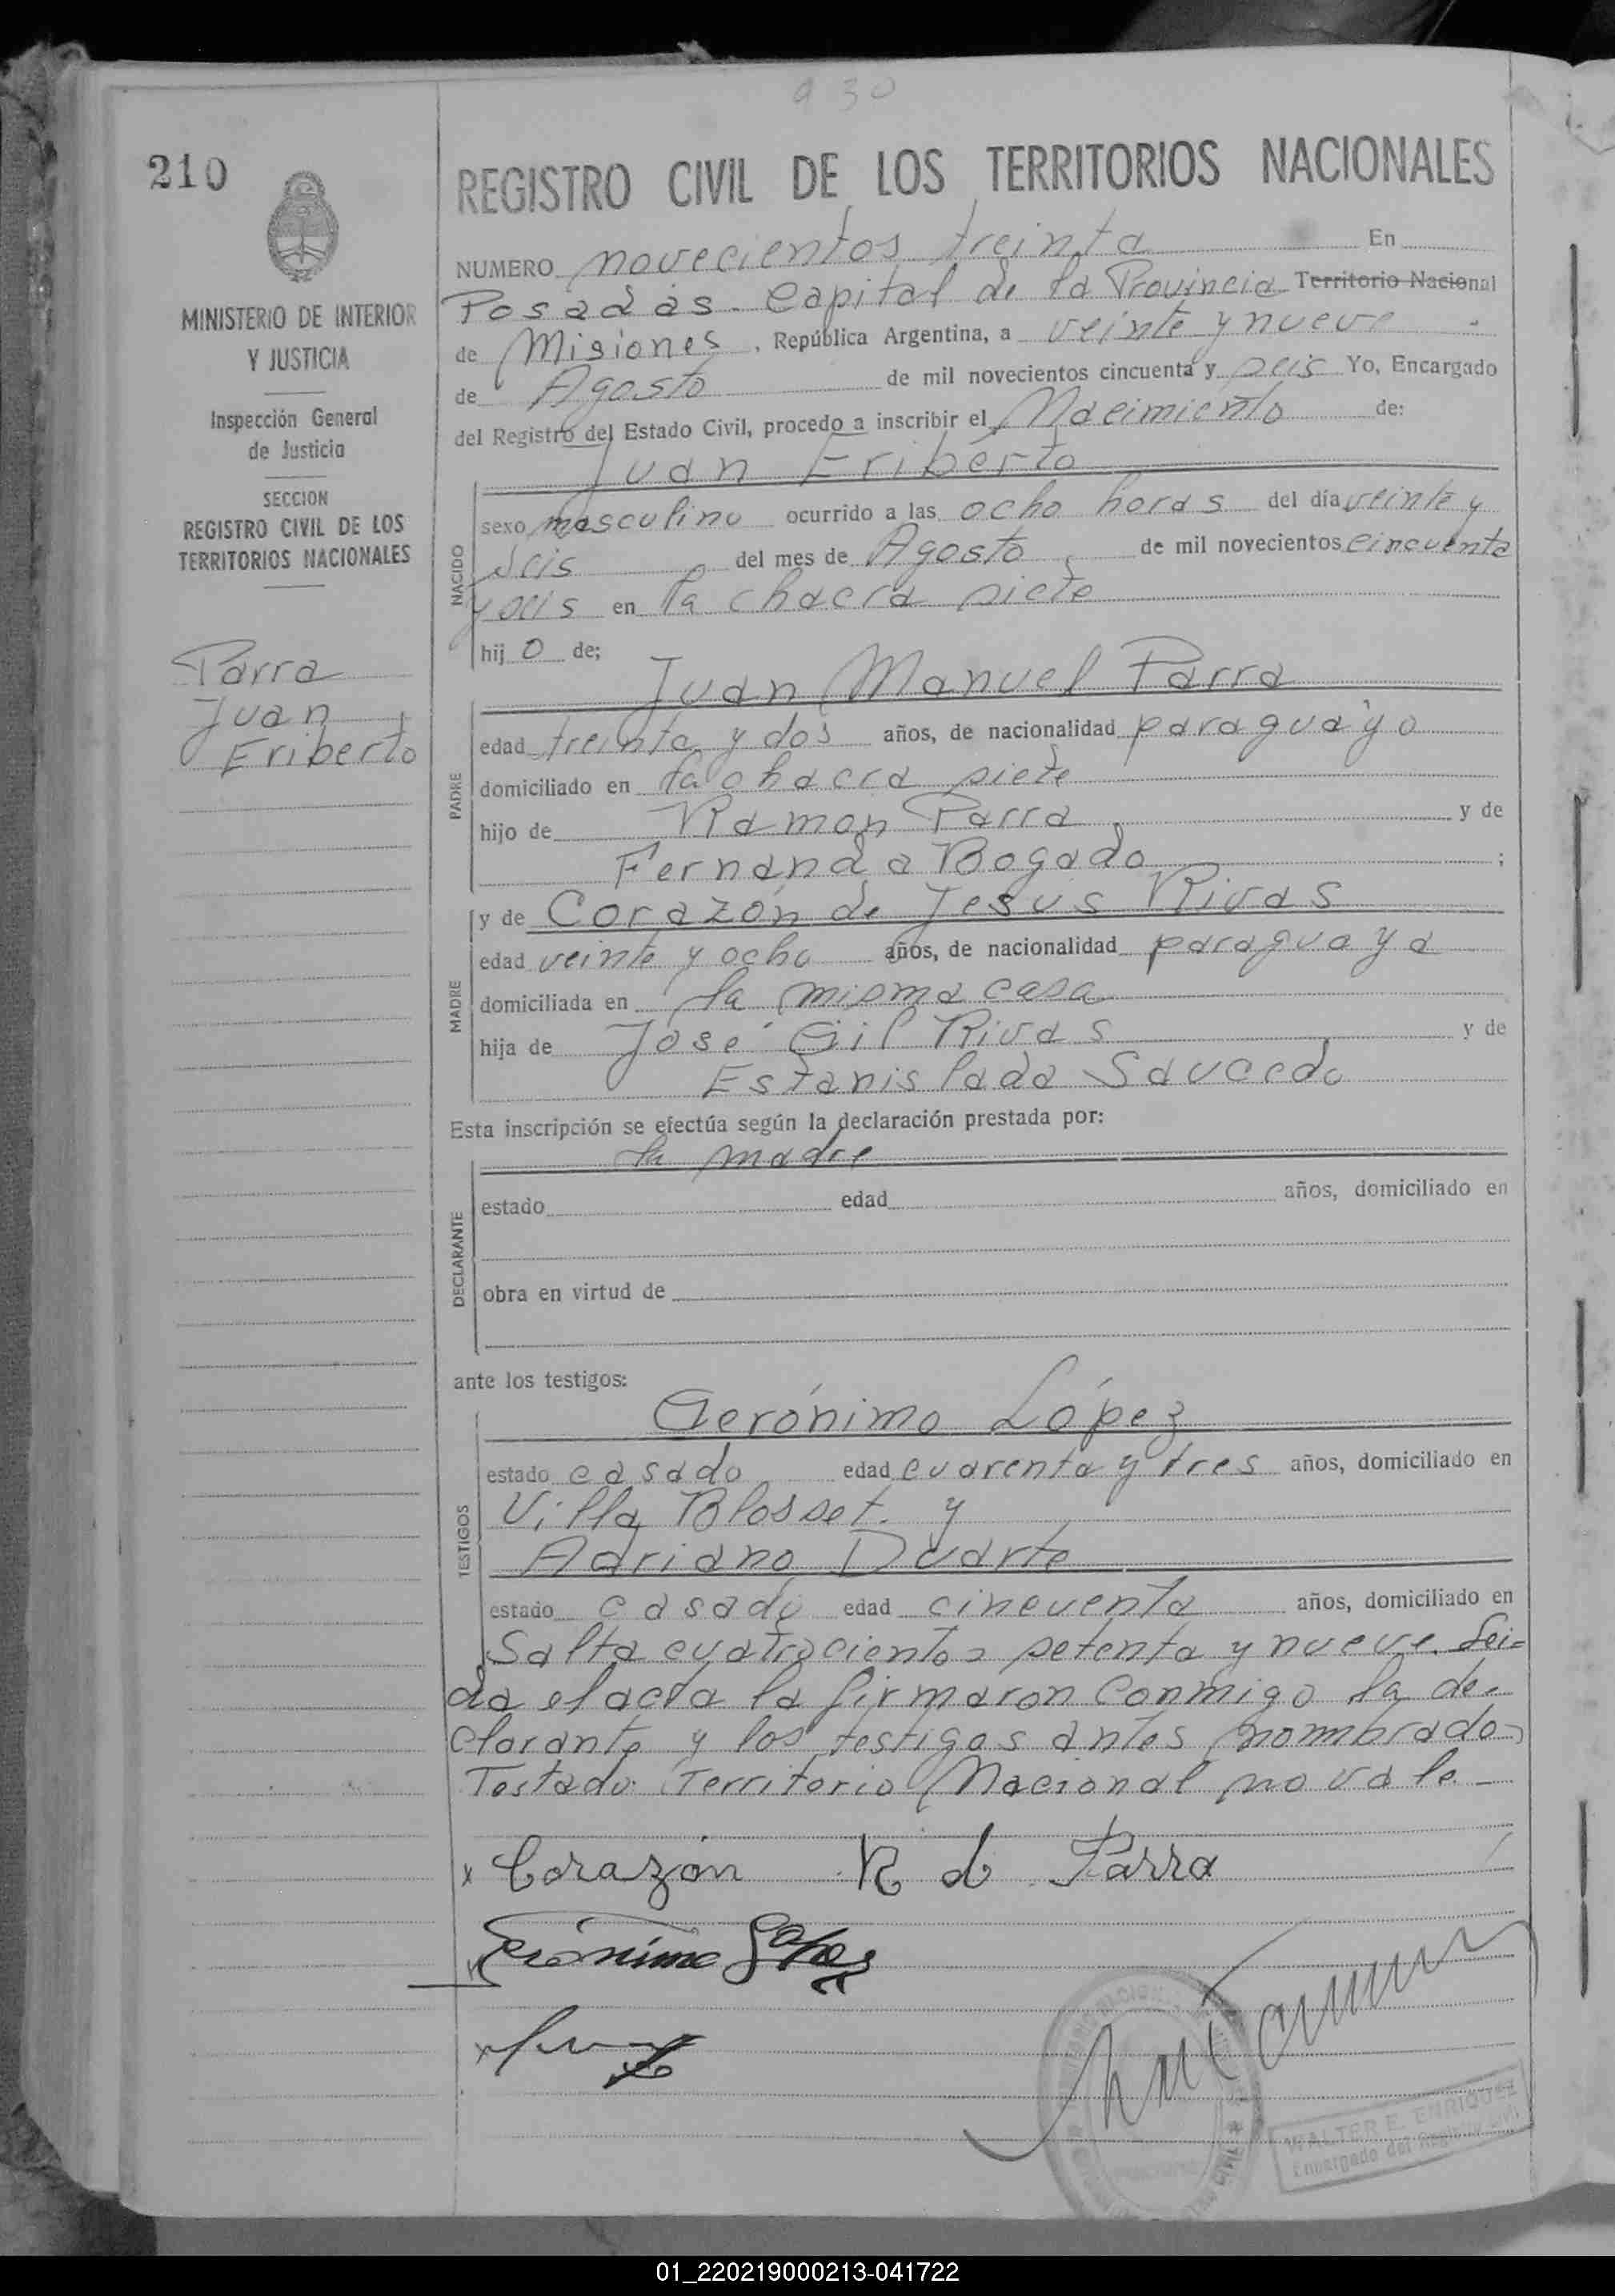 930
210
REGISTRO CIVIL DE LOS TERRITORIOS NACIONALES
MINISTERIO DE INTERIOR
Y JUSTICIA
Inspección General
de Justicia
SECCION
REGISTRO CIVIL DE LOS
TERRITORIOS NACIONALES
Parra
Juan
Eriberto
NUMERO novecientos treinta En
Posadas. Capital de la Provincia Territorio Nacional
de Misiones, República Argentina, a veinte y nueve
de Agosto de mil novecientos cincuenta y seis Yo, Encargado
del Registro del Estado Civil, procedo a inscribir el Nacimiento de:
Juan Eriberto
NACIDO
sexo masculino ocurrido a las ocho horas del día veinte y
seis del mes de Agosto de mil novecientos cincuenta
y seis en la chacra siete
hijo de;
Juan Manuel Parra
PADRE
edad treinta y dos años, de nacionalidad paraguayo
domiciliado en la chacra siete
hijo de Ramon Parra y de
Fernanda Bogado ;
MADRE
y de Corazón de Jesus Rivas
edad veinte y ocho años, de nacionalidad paraguaya
domiciliada en la misma casa
hija de José Gil Rivas y de
Estanislada Saucedo
Esta inscripción se efectúa según la declaración prestada por:
la madre
DECLARANTE
estado edad años, domiciliado en
obra en virtud de
ante los testigos:
Gerónimo López
TESTIGOS
estado casado edad cuarenta y tres años, domiciliado en
Villa Blosset. y
Adriano Duarte
estado casado edad cincuenta años, domiciliado en
Salta cuatrocientos setenta y nueve. Lei=
da el acta la firmaron conmigo la de-
clarante y los testigos antes nombrados
Testado: Territorio Nacional no vale-
x Corazón R de Parra
Gerónimo López
WALTER E. ENRIQUEZ
Encargado del Registro Civil
01_220219000213-041722